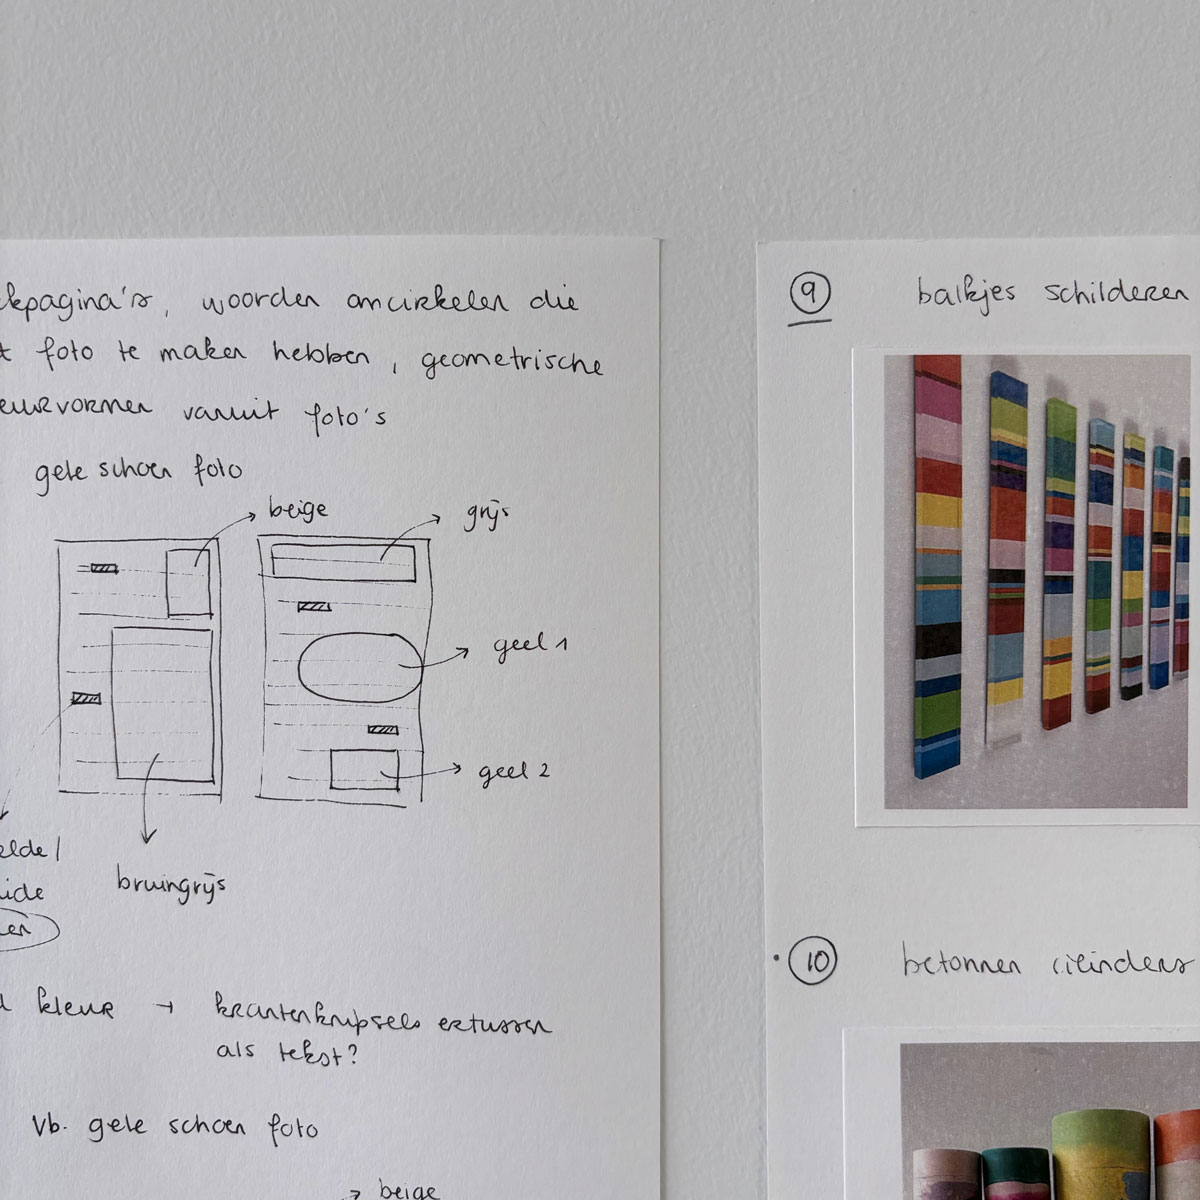 woorden omcirkelen die
foto te maken hebben, geometrische
vanuit foto's
gele schoen foto
beige
grijs
geel 1
geel 2
bruingrijs
kleur → krantenknipsels ertussen
als tekst?
vb. gele schoen foto
→ beige
9 balkjes schilderen
10 betonnen cilinders